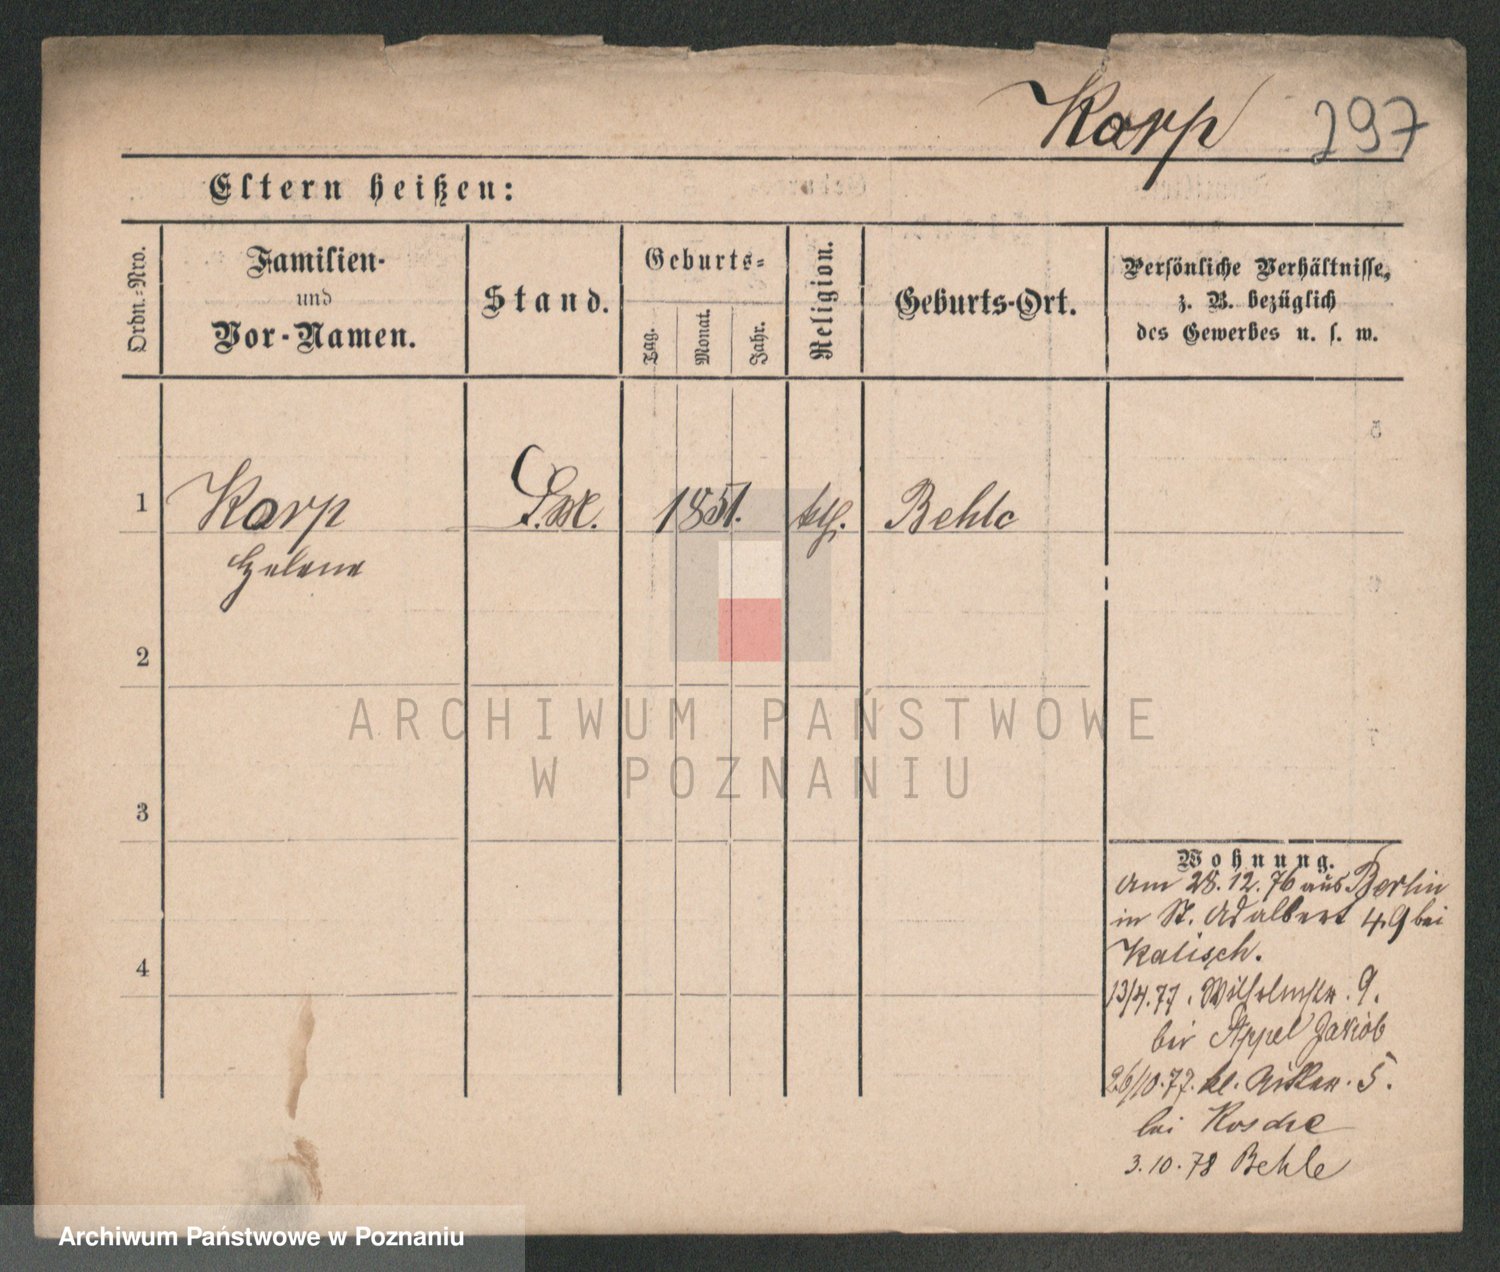 Karp 297
Eltern heißen:
Ordn.-Nro.
Familien-
und
Vor-Namen.
Stand.
Geburts-
Tag.
Monat.
Jahr.
Religion.
Geburts-Ort.
Persönliche Verhältnisse,
z. B. bezüglich
des Gewerbes u. s. w.
1 Karp 1851. kth. Behle
Helene
2
3
4
ARCHIWUM PAŃSTWOWE
W POZNANIU
Wohnung.
Am 28.12.76 aus Berlin
in St. Adalbert 4.9 bei
Kalisch.
13/4.77. Wilhelmstr. 9.
bei Appel Jakob
26/10.77. kl. Ritter. 5.
bei
3.10.78 Behle
Archiwum Państwowe w Poznaniu